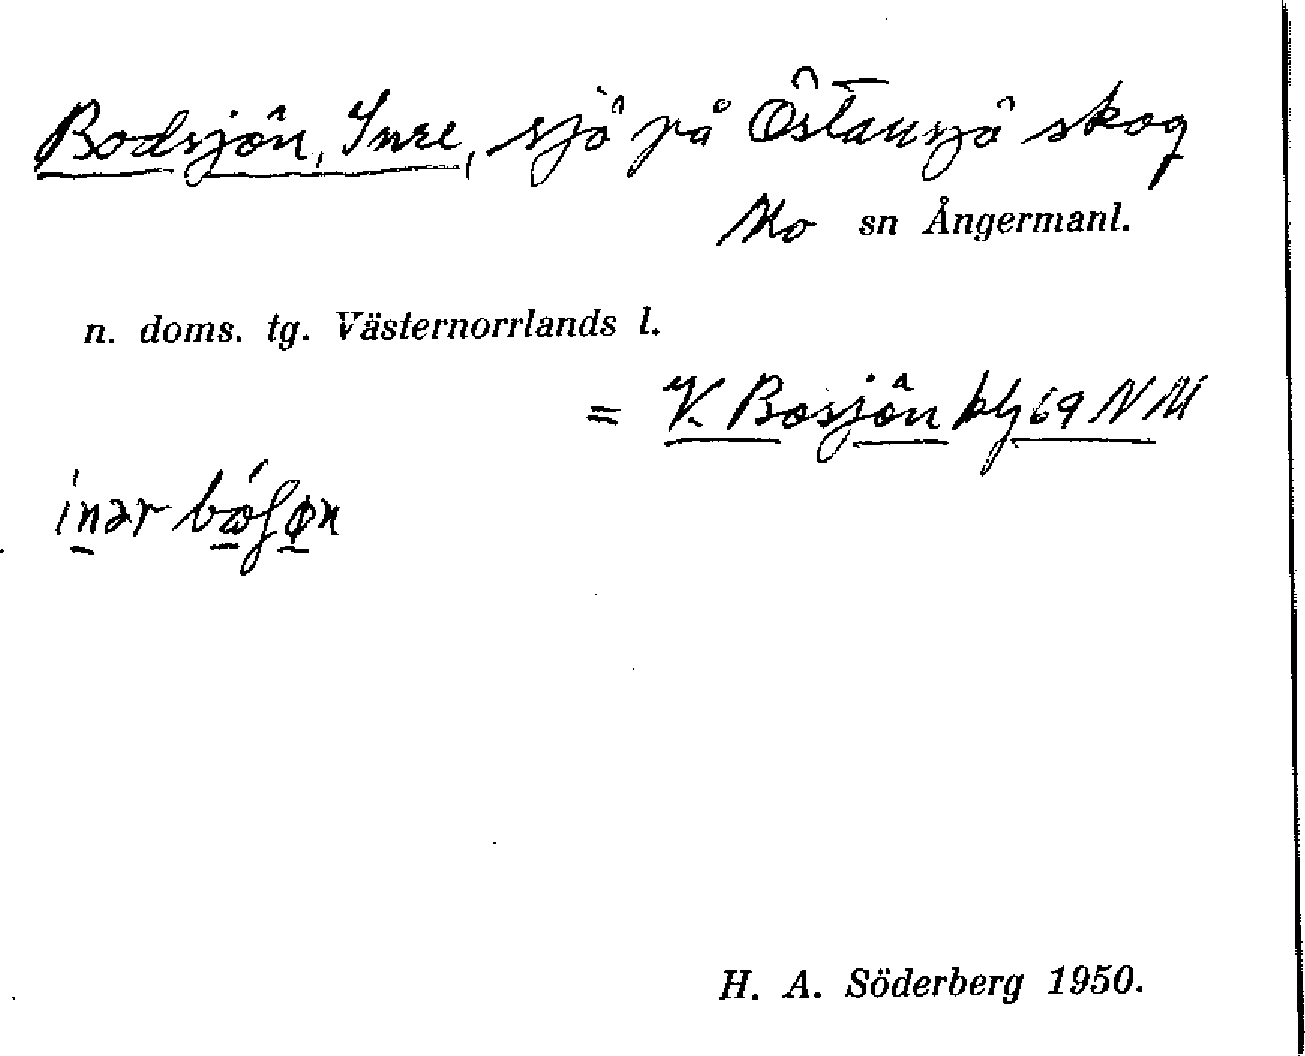 Bodsjön, Inre, sjö på Östansjö skog
Mo sn Ångermanl.
n. doms. tg. Västernorrlands l.
= V. Bosjön blj 69 NM
inər bǽʃøn
H. A. Söderberg 1950.